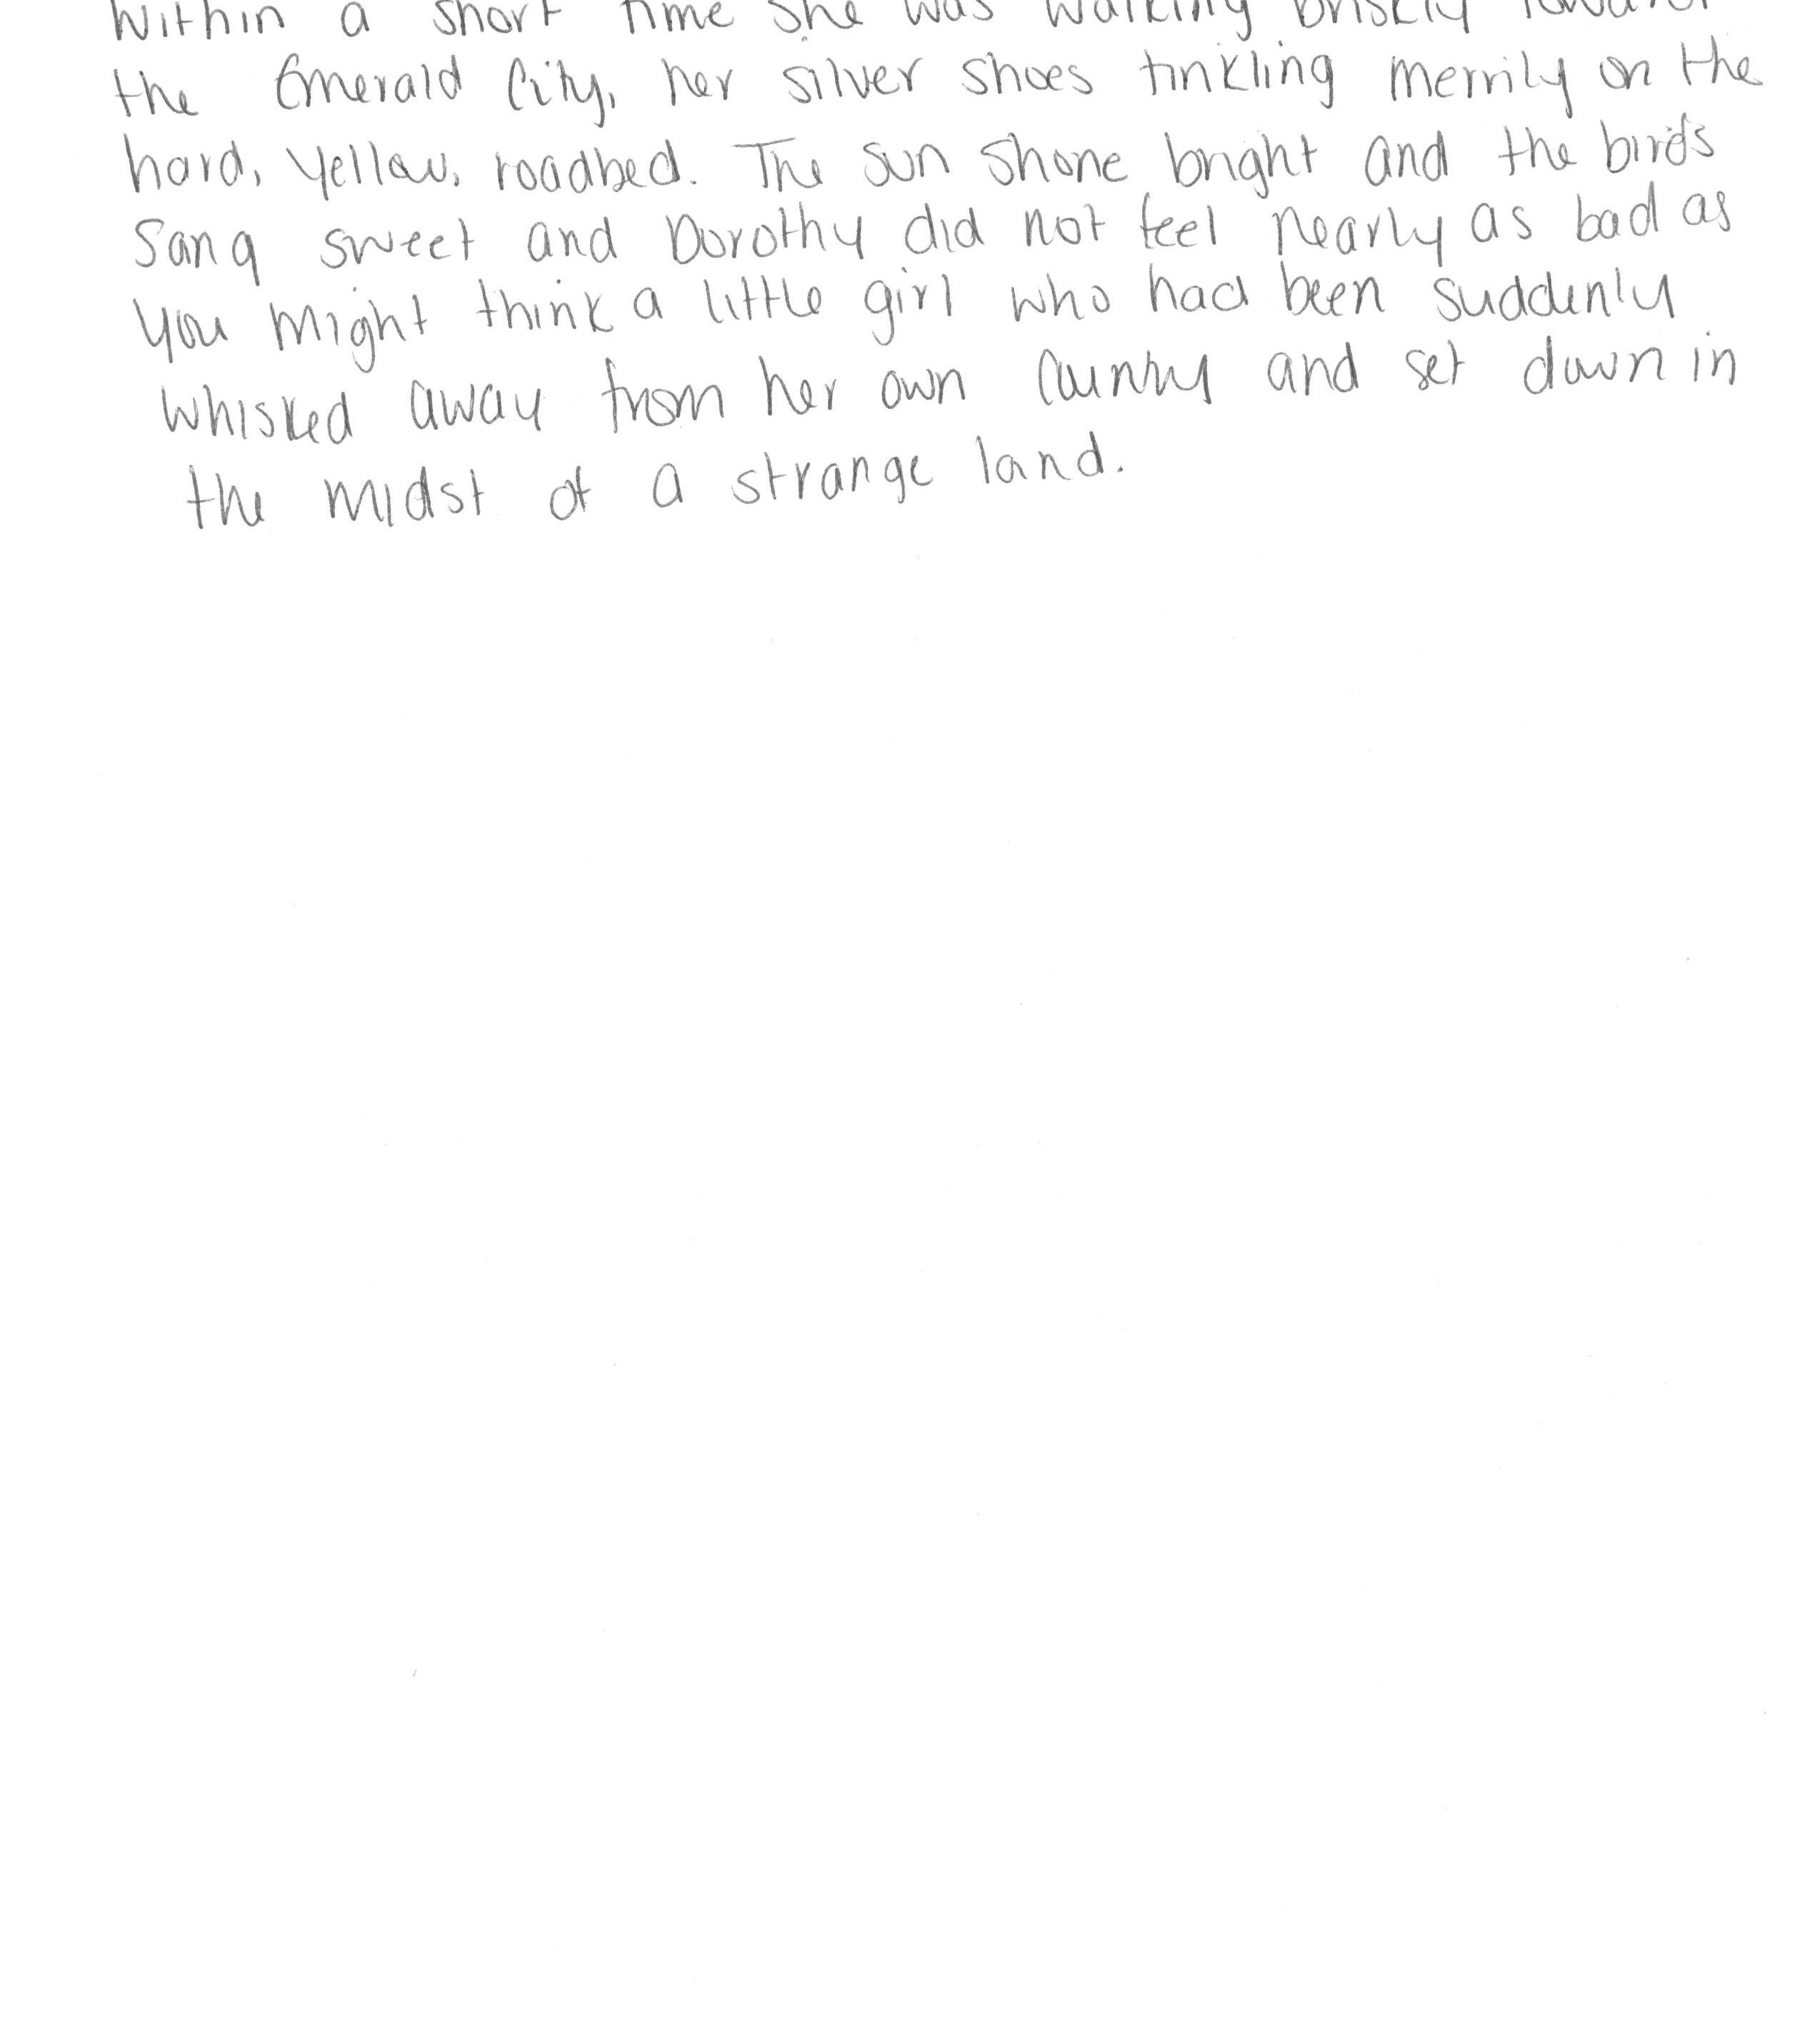 Within a short time she was walking briskly toward
the Emerald City, her silver shoes tinkling merrily on the
hard, yellow, roadbed. The sun shone bright and the birds
sang sweet and Dorothy did not feel nearly as bad as
you might think a little girl who had been suddenly
whisked away from her own cuntry and set down in
the midst of a strange land.